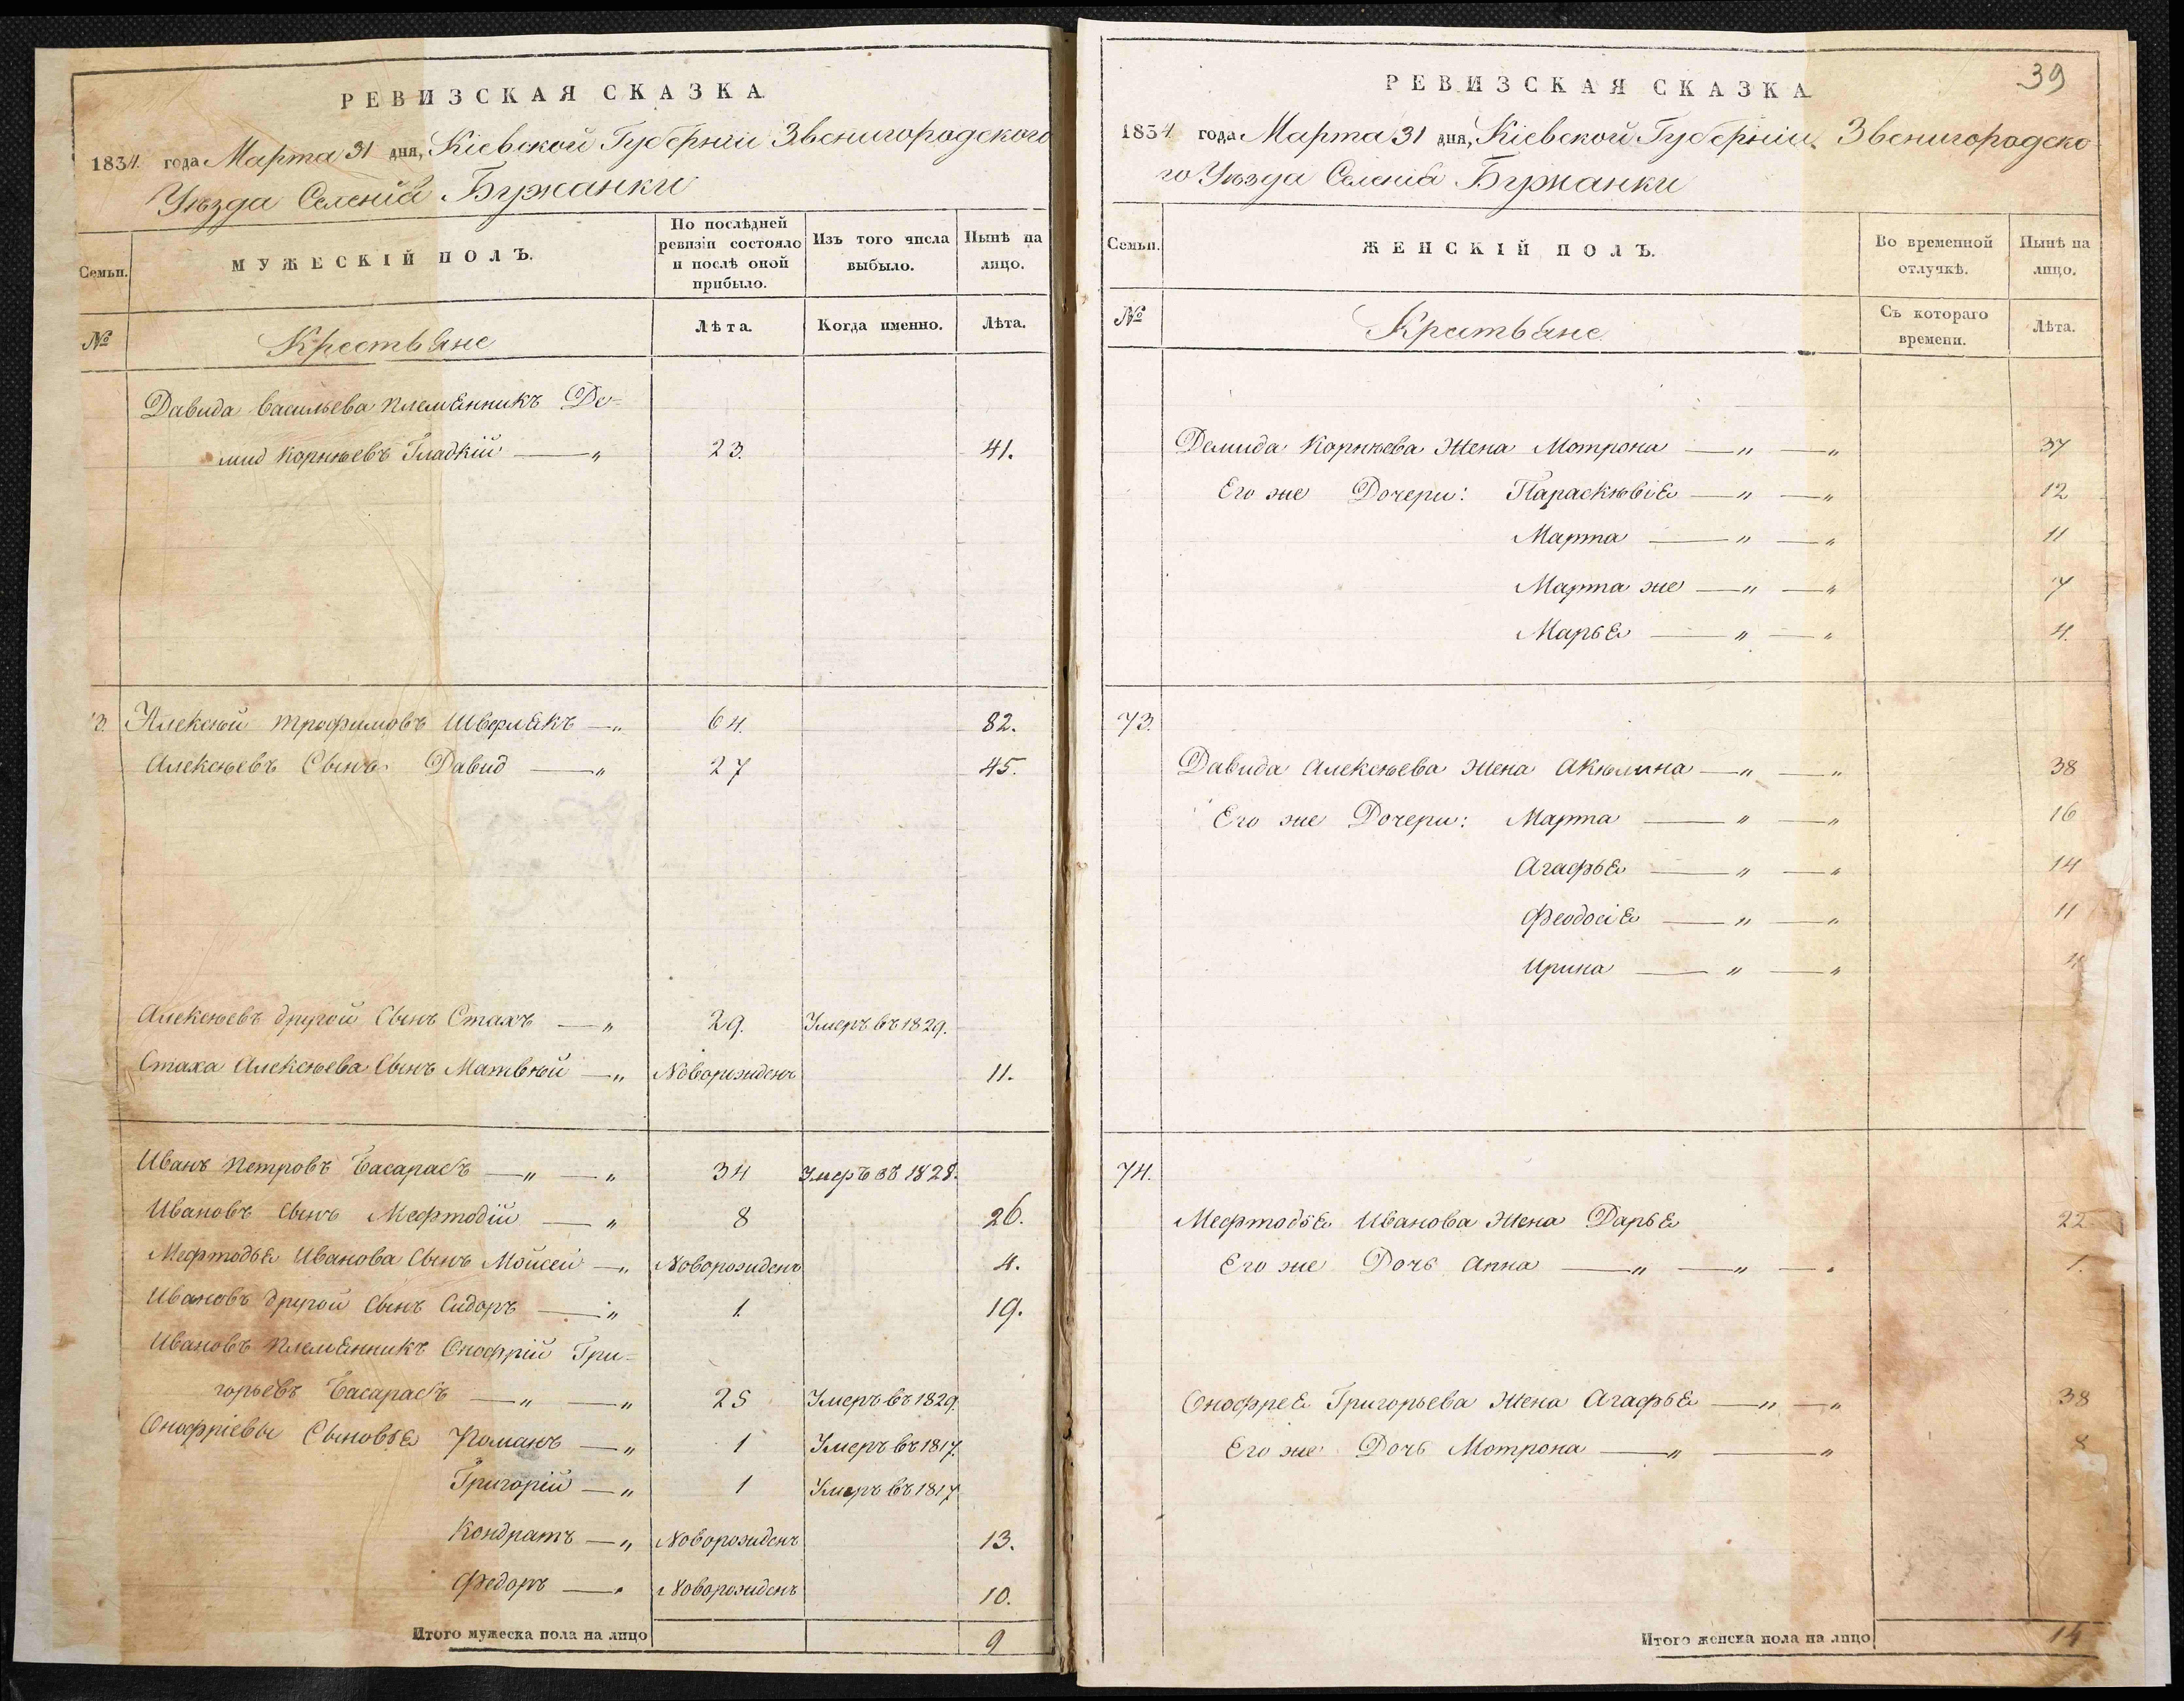 РЕВИЗСКАЯ СКАЗКА
1834 года Марта 31 дня, Кіевской Губерніи Звенигородского
Уѣзда Селенія Бужанки
Семьи.
МУЖЕСКІЙ ПОЛЪ.
По послѣдней ревизіи состояло и послѣ оной прибыло.
Изъ того числа выбыло.
Нынѣ на лицо.
№
Крестьяне
Лѣта.
Когда именно.
Лѣта.
Давида Васильева племянникъ Де-
мид Корнѣевъ Гладкій — „ 23. 41.
3. Алексѣй Трофимовъ Шверлякъ — „ 64. 82.
Алексѣевъ Сынъ Давид — „ 27 45.
Алексѣевъ другой Сынъ Стахъ — „ 29. Умеръ въ 1829.
Стаха Алексѣева Сынъ Матвѣй — „ Новорожденъ 11.
Иванъ Петровъ Басарабъ — „ — „ 34 Умеръ въ 1828.
Ивановъ Сынъ Мефтодій — „ 8 26.
Мефтодья Иванова Сынъ Мойсей — „ Новорожденъ 4.
Ивановъ другой Сынъ Сидоръ — „ 1. 19.
Ивановъ племянникъ Онофрій Гри-
горьевъ Басарабъ — „ — „ 25 Умеръ въ 1829
Онофріевы Сыновья Романъ — „ 1 Умеръ въ 1817.
Григорій — „ 1 Умеръ въ 1817
Кондратъ — „ Новорожденъ 13.
Федоръ — „ Новорожденъ 10.
Итого мужеска пола на лицо 9
39
РЕВИЗСКАЯ СКАЗКА
1834 года Марта 31 дня, Кіевской Губерніи Звенигородско
го Уѣзда Селенія Бужанки
Семьи.
ЖЕНСКІЙ ПОЛЪ.
Во временной отлучкѣ.
Нынѣ на лицо.
№
Крестьяне
Съ котораго времени.
Лѣта.
Демида Корнѣева Жена Мотрона — „ — „ 37
Его же Дочери: Параскѣвія — „ — „ 12
Марта — „ — „ 11
Марта же — „ — „ 7
Марья — „ — „ 4.
73.
Давида Алексѣева Жена Акюлина — „ — „ 38
Его же Дочери: Марта — „ — „ 16
Агафья — „ — „ 14
Феодосія — „ — „ 11
Ирина — „ — „ 4
74.
Мефтодья Иванова Жена Дарья 22.
Его же Дочь Анна — „ — „ — „ 1.
Онофрея Григорьева Жена Агафья — „ — „ 38
Его же Дочь Мотрона — „ — „ 8
Итого женска пола на лицо 14